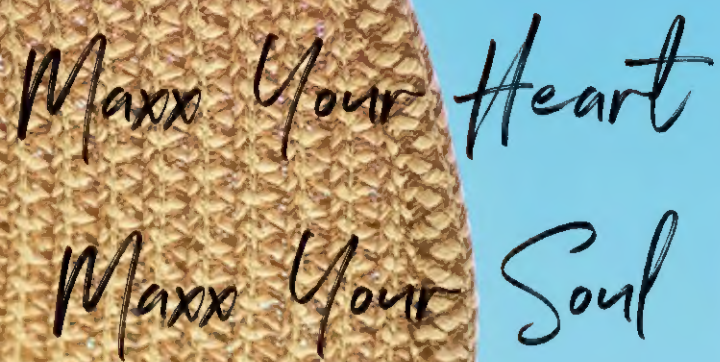 Maxx Your Heart
Maxx Your Soul